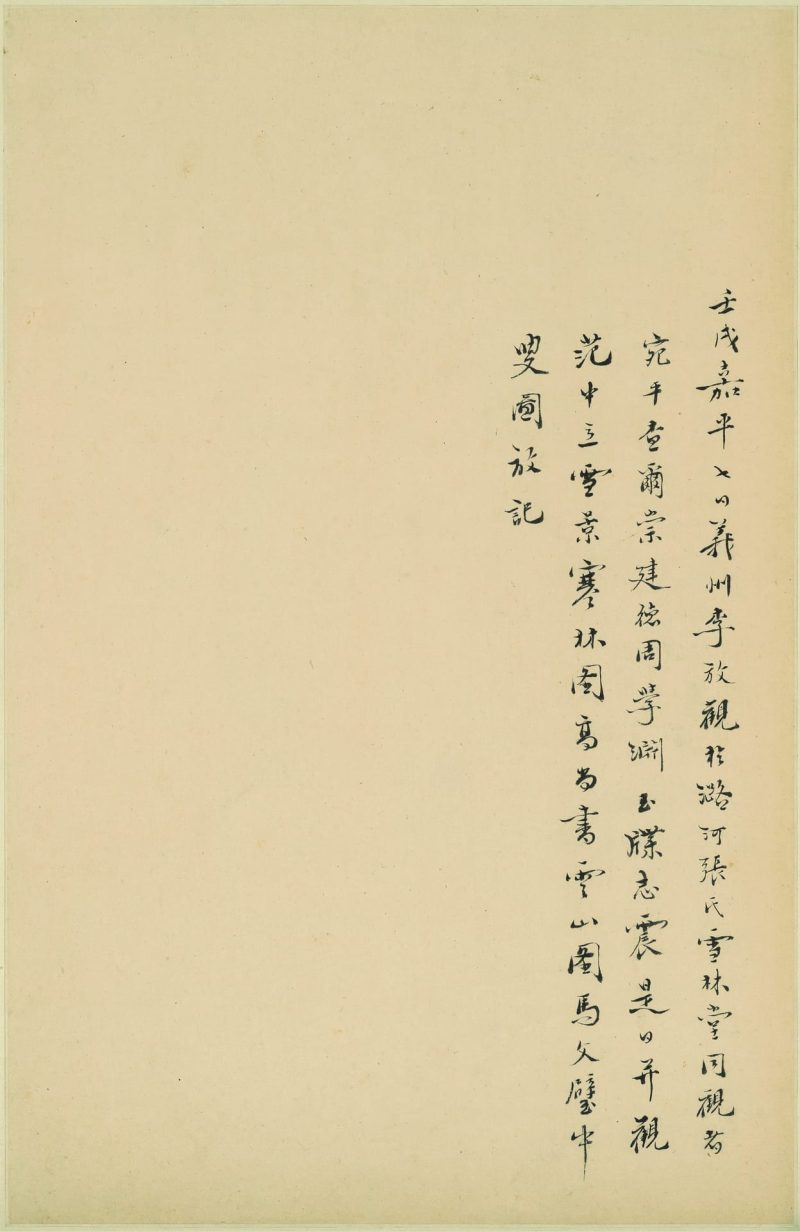 壬戌嘉平七日義州李放觀於潞河張氏雪林堂同觀者
宛平查爾崇建德周學淵玉牒志震是日并觀
范中立雪景寒林图高尚書雲山圖馬文璧中
叟圖放記